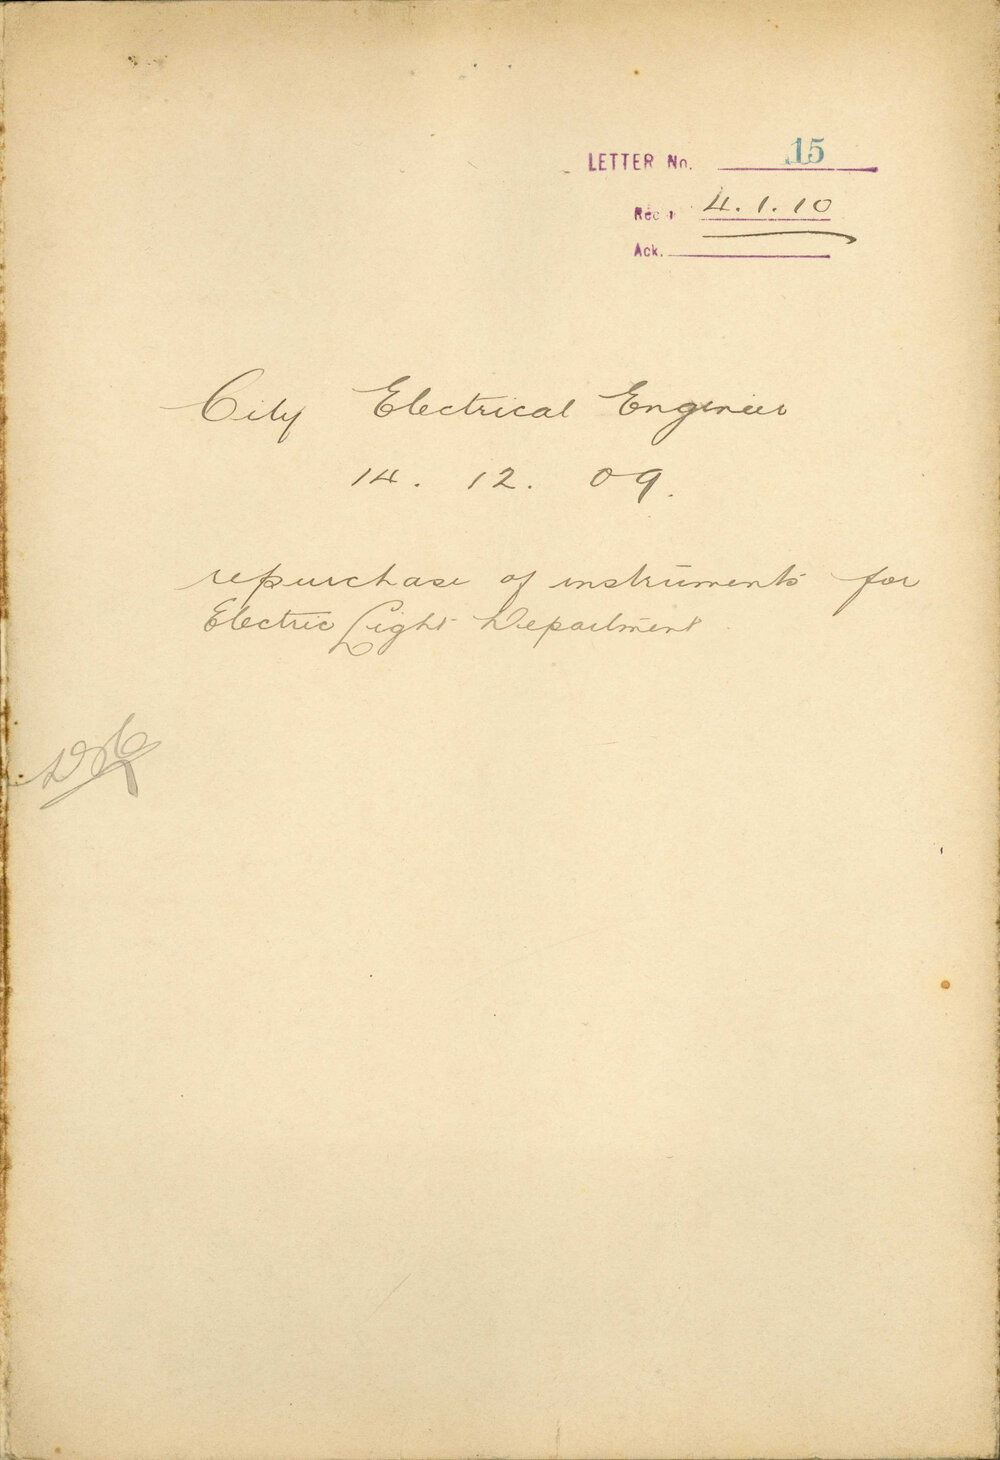 LETTER No. 15
Rec'd 4.1.10
Ack.
City Electrical Engineer
14. 12. 09.
repurchase of instruments for
Electric Light Department